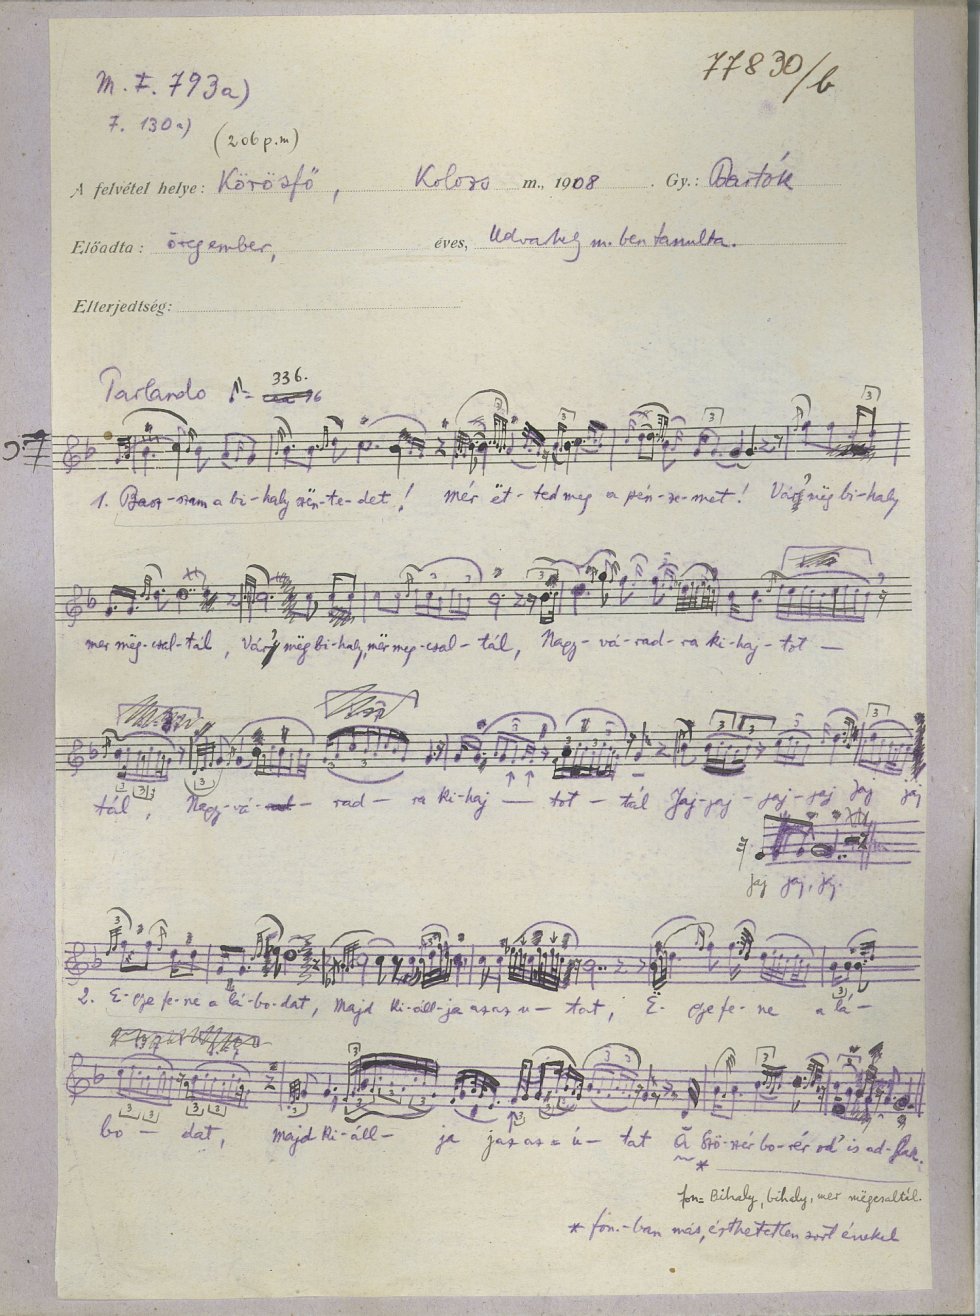 77830/b
M. F. 793a)
7. 130a)
(206 p.m)
A felvétel helye: Körösfő, Kolozs m., 1908. Gy.: Bartók
Előadta: öregember, éves, Udvarhely m. ben tanulta.
Elterjedtség:
Parlando 336.
ca 76
1. Basz-szam a bi-haly szën-te-det! mér ët-ted meg a pén-ze-met! Várj mëg bi-haly
mer mëg-csal-tál, Várj mëg bi-haly, mer meg-csal-tál, Nagy-vá-rad-ra ki-haj-tot —
tál, Nagy-vá- rad- ra ki-haj — tot - tál Jaj-jaj - jaj - jaj jaj jaj
jaj jaj, jaj.
2. E-gye fe-ne a lá-bo-dat, majd ki-áll-ja az az u- tat, Ë- gye fe- ne a lá-
bo — dat, majd ki-áll- ja jaz az u ú- tat A szö-szér bo-rér od' is ad-
fon= Bihaly, bihaly, mer mëgcsaltál.
* fon.-ban más, érthetetlen sort énekel